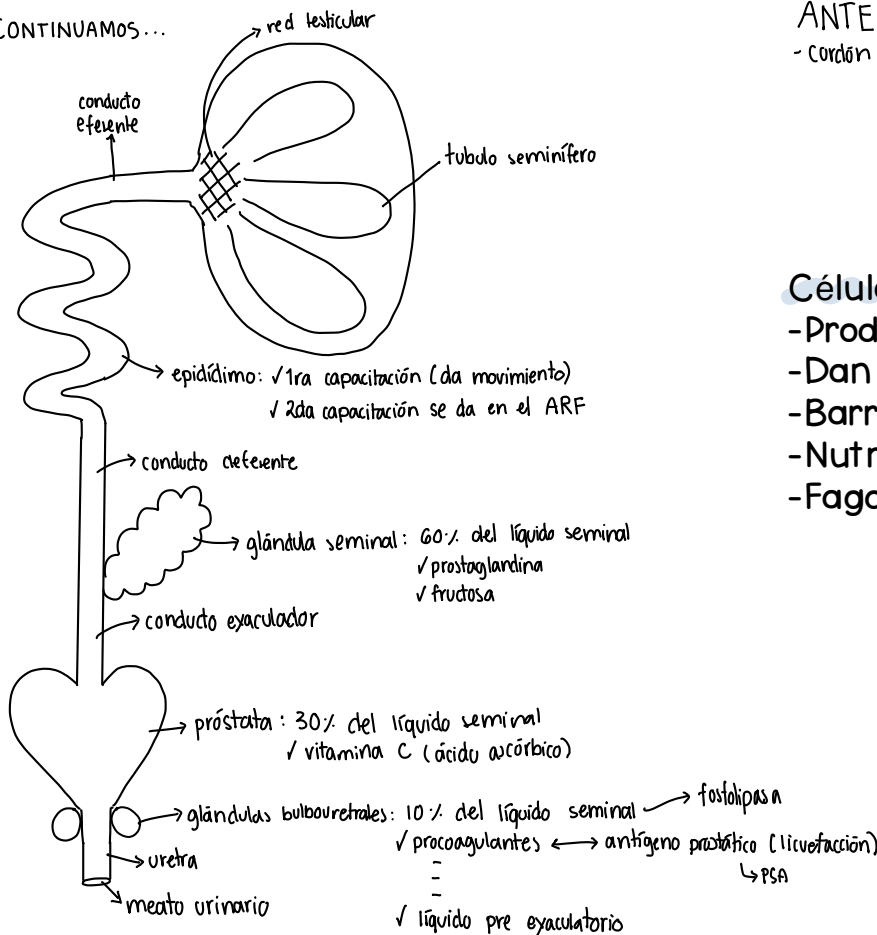 CONTINUAMOS...
red testicular
conducto
eferente
tubulo seminífero
epidídimo: ✓ 1ra capacitación (da movimiento)
✓ 2da capacitación se da en el ARF
conducto deferente
glándula seminal: 60% del líquido seminal
✓ prostaglandina
✓ fructosa
conducto eyaculador
próstata: 30% del líquido seminal
✓ vitamina C (ácido ascórbico)
glándulas bulbouretrales: 10% del líquido seminal → fosfolipasa
✓ procoagulantes ↔ antígeno prostático (licuefacción)
↳ PSA
-
-
-
✓ líquido pre eyaculatorio
uretra
meato urinario
ANTE
- cordón
Célul
-Prod
-Dan
-Barr
-Nutr
-Fago